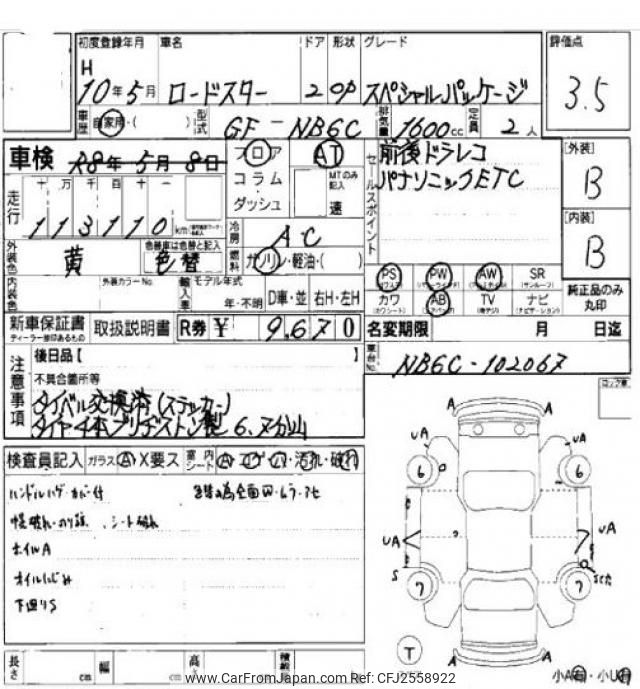 初度登録年月 車名 ドア 形状 グレード 評価点
H 10年5月 ロードスター 2 OP スペシャルパッケージ 3.5
車歴 自家用・( ) 型式 GF-NB6C 排気量 1600cc 定員 2人
車検 R8年5月8日 フロア AT セールスポイント 前後ドラレコ [外装]
コラム MTのみ記入 パナソニックETC B
走行 十万千百十一 ダッシュ 速
113110 km 冷房 A・C [内装]
外装色 黄 色替車は色替と記入 色替 燃料 ガソリン・軽油・( ) B
PS PW AW SR (サンルーフ)
内装色 外装カラーNo. 輸入車 モデル年式 年・不明 D車・並 右H・左H カワ (カワシート) AB (エアバック) TV ナビ (ナビゲーション) 純正品のみ丸印
新車保証書 取扱説明書 R券 ¥ 9,670 名変期限 月 日迄
ディーラー捺印あるもの
注意事項 後日品【 】 車台No. NB6C-102067
不具合箇所等
タイベル交換済(ステッカー)
タイヤ4本ブリヂストン製 6、7分山
検査員記入 ガラス A X要ス 室内 シート
ハンドルハゲ・カバー付
シート破れ
ホイルA
オイルにじみ
下廻りS
A A
UA UA
6 6
UA ? UA
S
7 7
T
A A
長さ cm 幅 cm 高さ cm 積載
小A有・小U有
www.CarFromJapan.com Ref: CFJ2558922